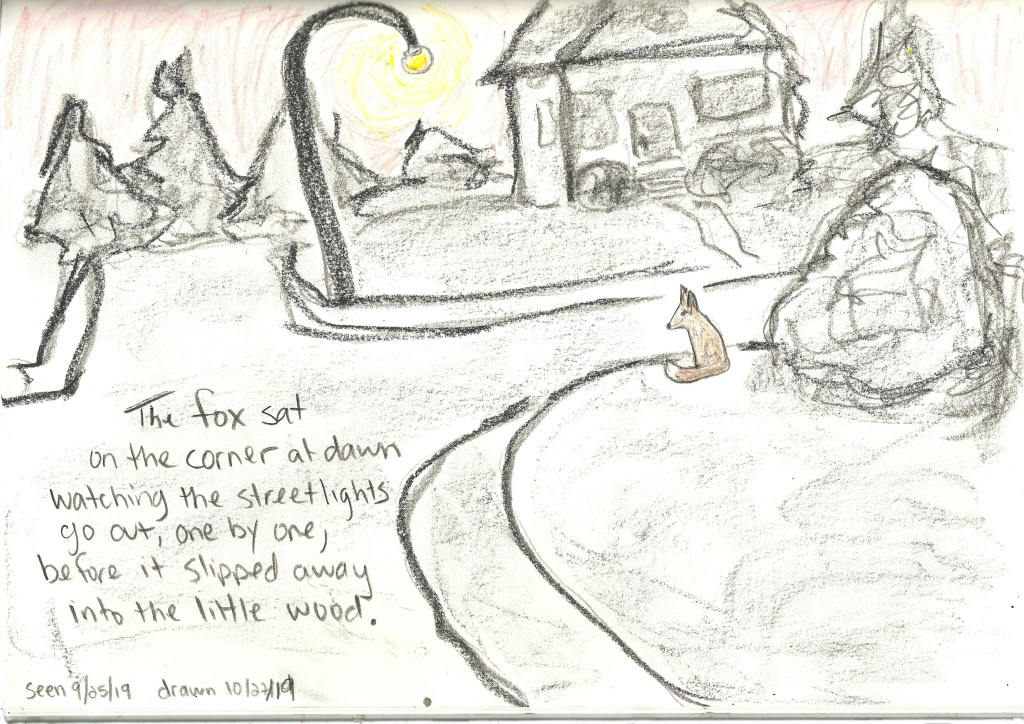 The fox sat
on the corner at dawn
watching the streetlights
go out, one by one,
before it slipped away
into the little wood.
seen 9/25/19 drawn 10/27/19